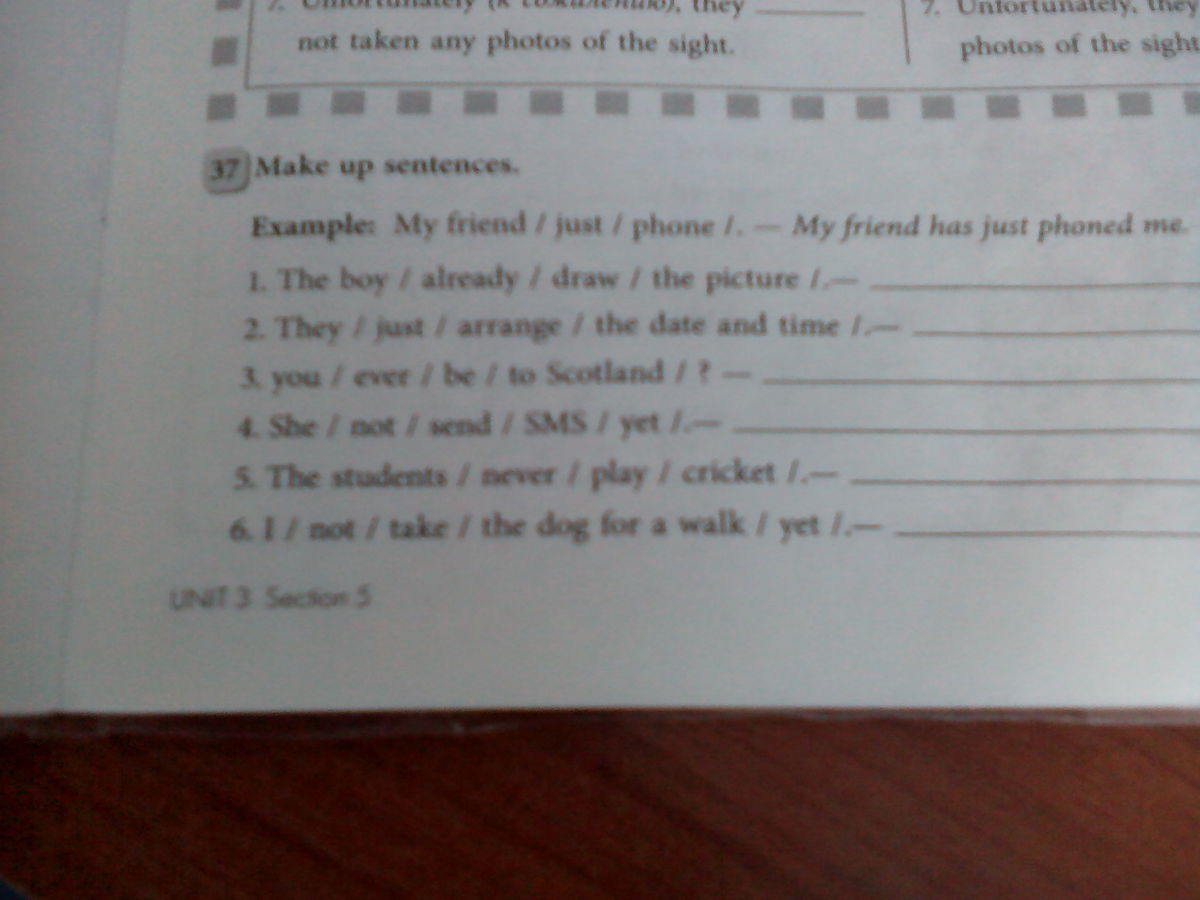 7. Unfortunately (к сожалению), they ________
not taken any photos of the sight.
7. Unfortunately, they
photos of the sight
37 Make up sentences.
Example: My friend / just / phone /. — My friend has just phoned me.
1. The boy / already / draw / the picture /.— ________
2. They / just / arrange / the date and time /.— ________
3. you / ever / be / to Scotland / ? — ________
4. She / not / send / SMS / yet /.— ________
5. The students / never / play / cricket /.— ________
6. I / not / take / the dog for a walk / yet /.— ________
UNIT 3 Section 5